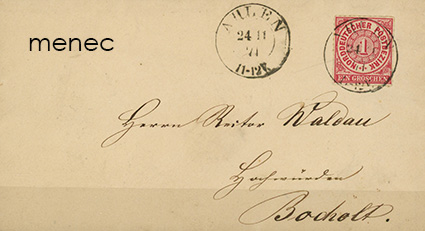 menec
AHLEN
24 11
71
11-12V.
NORDDEUTSCHER POSTBEZIRK
1
EIN GROSCHEN
Herrn Rector Waldau
Hochwürden
Bocholt.